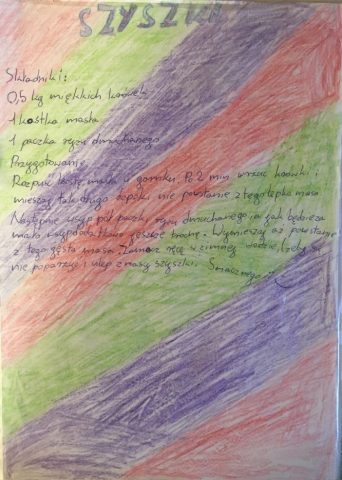 SZYSZKI
Składniki:
0,5 kg miękkich krówek
1 kostka masła
1 paczka ryżu dmuchanego
Przygotowanie
Rozpuść kostkę masła w garnku. Po 2 min wrzuć krówki i
mieszaj tak długo dopóki nie powstanie z tego lepka masa
Następnie wsyp pół paczki ryżu dmuchanego, a jak będzie za
mało wsyp dodatkowo jeszcze trochę. Wymieszaj aż powstanie
z tego gęsta masa. Zamocz ręce w zimnej wodzie, żeby się
nie poparzyć i ulep z masy szyszki. Smacznego